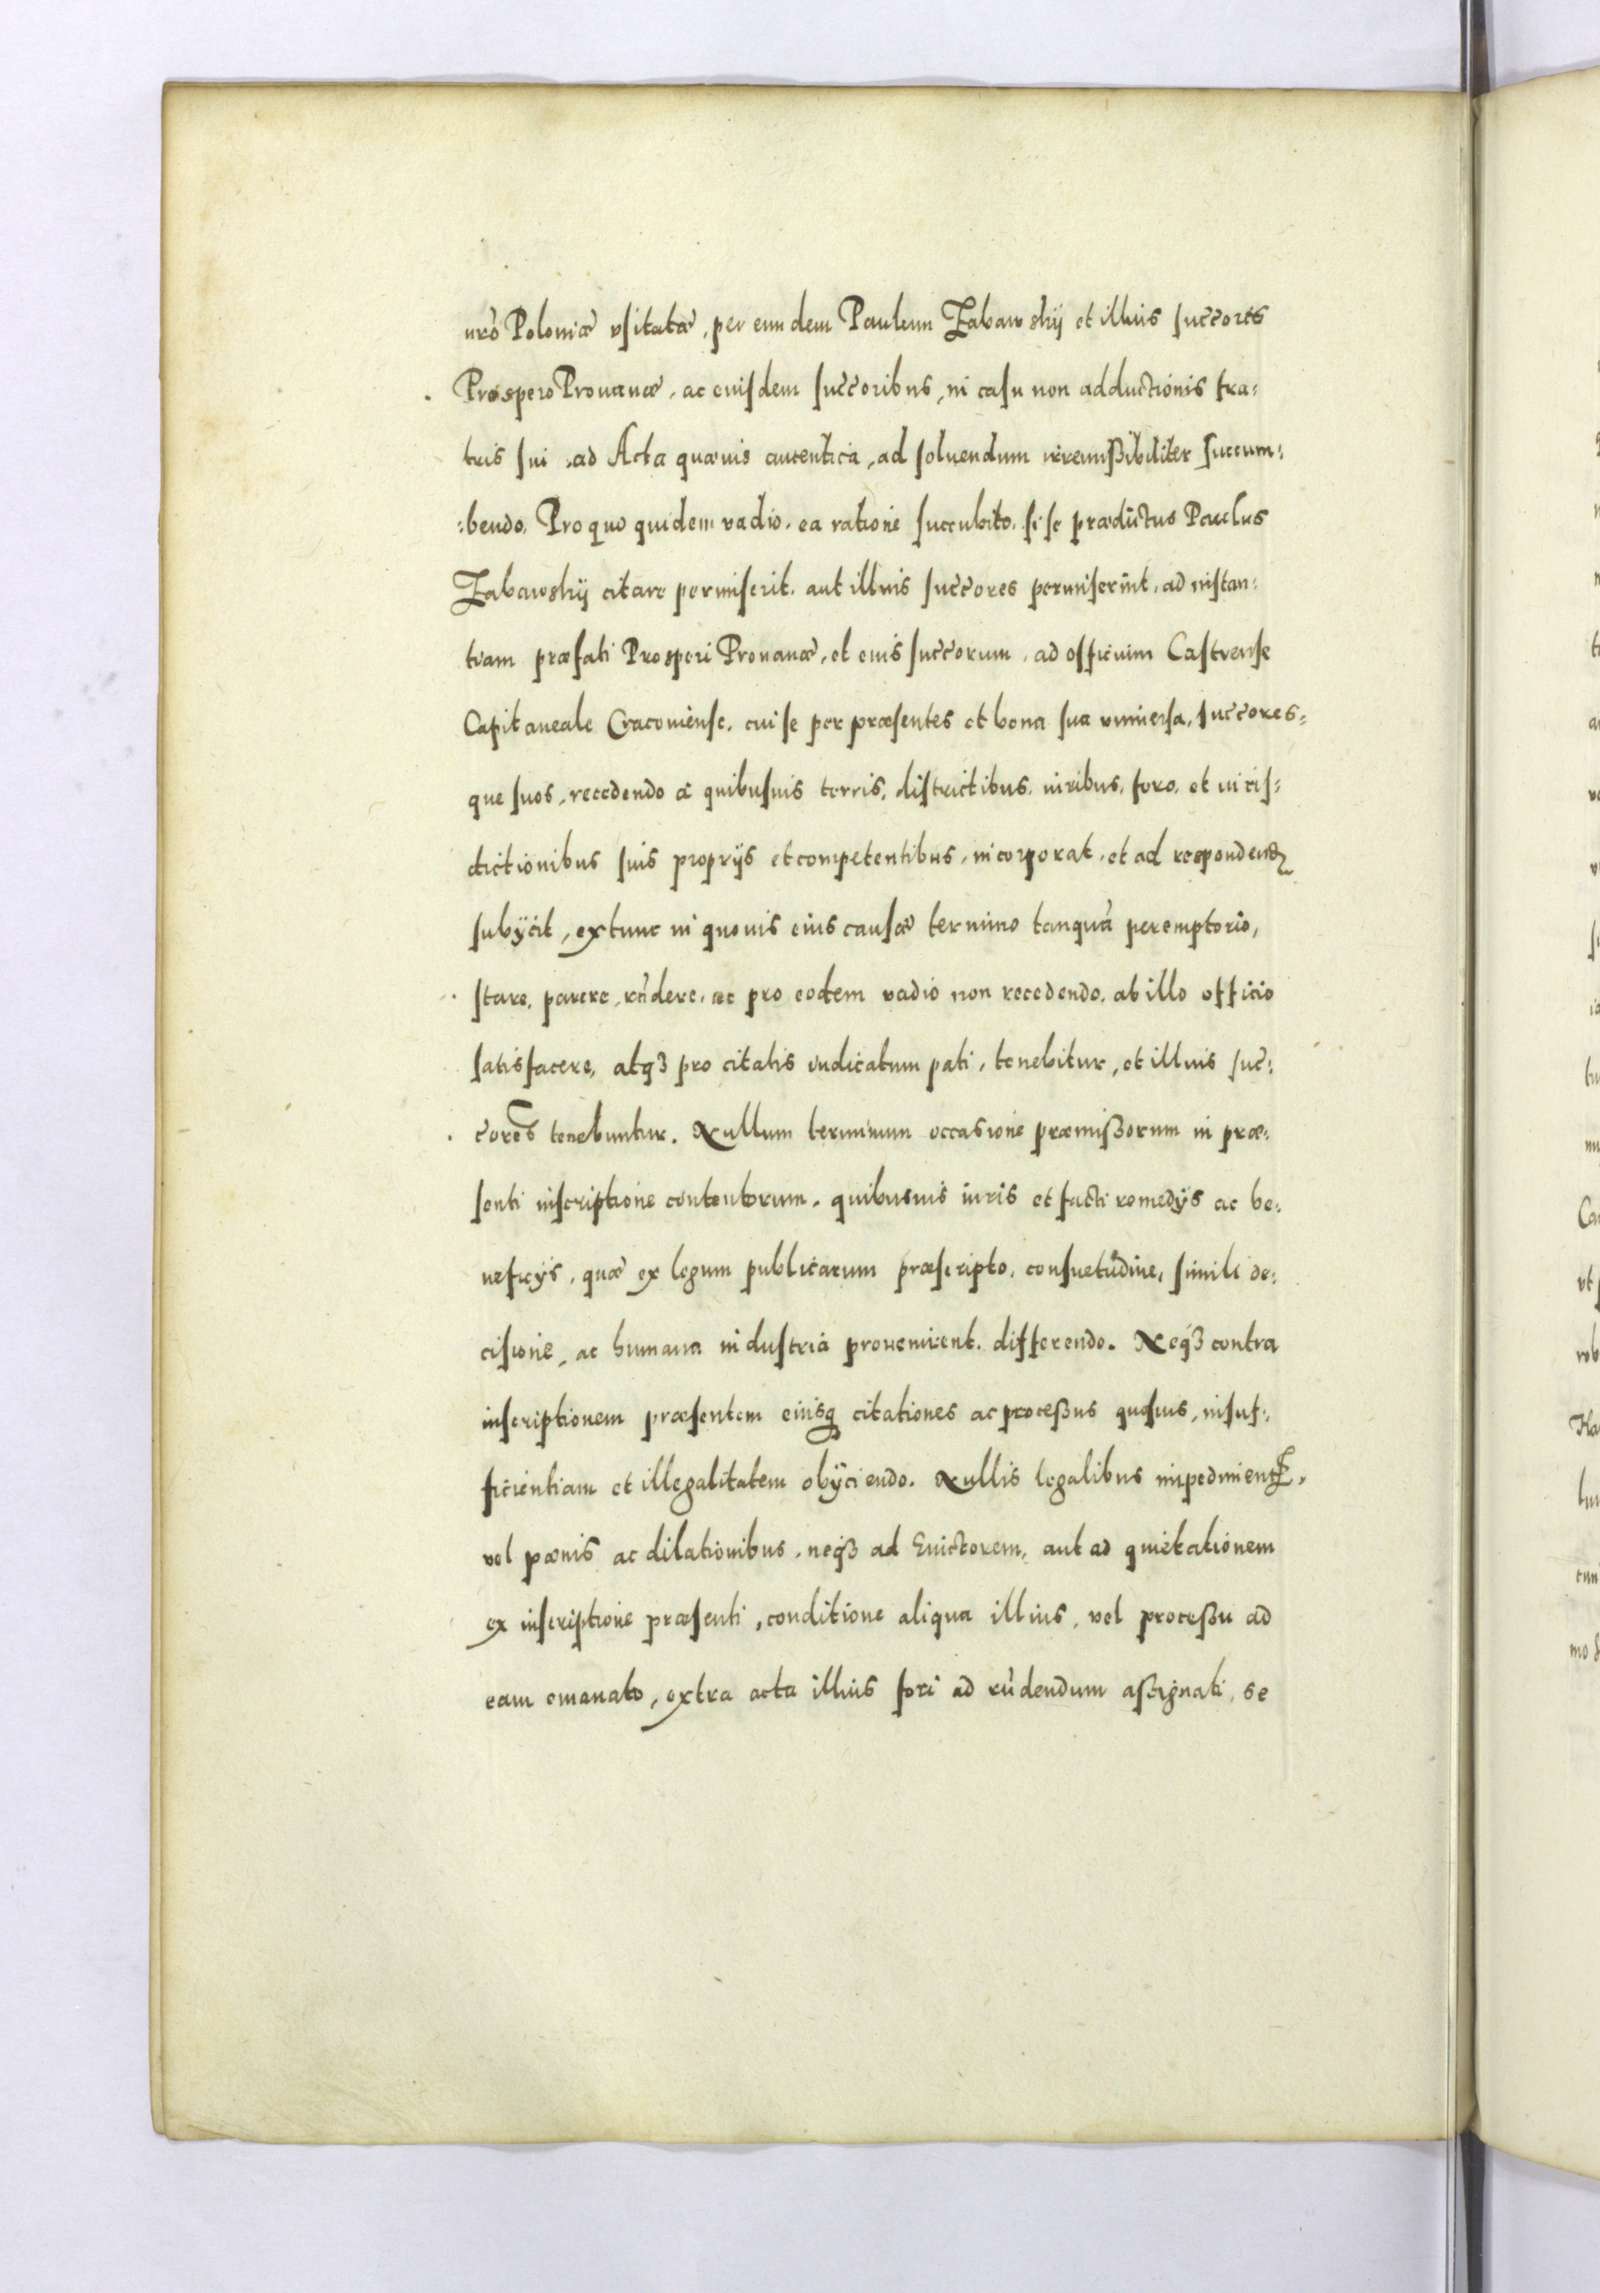 nrō Poloniæ vsitatæ, per eundem Paulum Zabawskÿ et illius succ̄ores
Prospero Prouanæ, ac eiusdem succ̄oribus, in casu non adductionis fra⸗
tris sui, ad Acta quæuis autentica, ad soluendum irremißibiliter succum⸗
⸗bendo. Pro quo quidem vadio, ea ratione succubito, si se prædictus Paulus
Zabawskÿ citare permiserit, aut illius succ̄ores permiserint, ad instan⸗
tiam præfati Prosperi Prouanæ, et eius succ̄orum, ad officium Castrense
Capitaneale Cracouiense, cui se per præsentes et bona sua vniuersa, succ̄ores⸗
que suos, recedendo a quibusuis terris, districtibus, iuribus, foro, et iuris⸗
dictionibus suis proprÿs et competentibus, incorporat, et ad respondend
subÿcit, extunc in quouis eius causæ termino tanquā peremptorio,
stare, parere, rn̄dere, ac pro eodem vadio non recedendo, ab illo officio
satisfacere, atqꝫ pro citatis iudicatum pati, tenebitur, et illius suc̄⸗
c̄ores tenebuntur. Nullum terminum occasione præmißorum in præ⸗
senti inscriptione contentorum, quibusuis iuris et facti remedÿs ac be⸗
neficÿs, quæ ex legum publicarum præscripto, consuetudine, simili de⸗
cisione, ac humana industria prouenirent, differendo. Neqꝫ contra
inscriptionem præsentem eiusq citationes ac proceßus quosuis, insuf⸗
ficientiam et illegalitatem obÿciendo. Nullis legalibus impedimentꝭ,
vel pænis ac dilationibus, neqꝫ ad Euictorem, aut ad quietationem
ex inscriptione præsenti, conditione aliqua illius, vel proceßu ad
eam emanato, extra acta illius fori ad rn̄dendum assignati, se